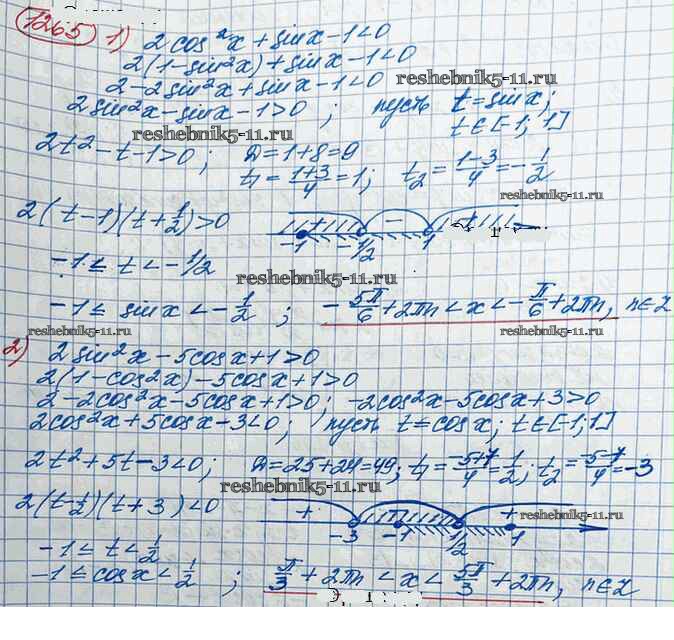 1265 1) 2cos²x + sinx - 1 < 0
2(1 - sin²x) + sinx - 1 < 0
2 - 2sin²x + sinx - 1 < 0
reshebnik5-11.ru
2sin²x - sinx - 1 > 0 ; пусть t = sinx;
t ∈ [-1; 1]
reshebnik5-11.ru
2t² - t - 1 > 0 ; D = 1 + 8 = 9
t₁ = (1+3)/4 = 1; t₂ = (1-3)/4 = -1/2
reshebnik5-11.ru
2(t - 1)(t + 1/2) > 0
+ - +
-1 -1/2 1
-1 ≤ t < -1/2
reshebnik5-11.ru
-1 ≤ sinx < -1/2 ; -5π/6 + 2πn < x < -π/6 + 2πn, n∈Z
reshebnik5-11.ru reshebnik5-11.ru
2) 2sin²x - 5cosx + 1 > 0
2(1 - cos²x) - 5cosx + 1 > 0
2 - 2cos²x - 5cosx + 1 > 0; -2cos²x - 5cosx + 3 > 0
2cos²x + 5cosx - 3 < 0; пусть t = cosx; t ∈ [-1; 1]
2t² + 5t - 3 < 0; D = 25 + 24 = 49; t₁ = (-5+7)/4 = 1/2; t₂ = (-5-7)/4 = -3
reshebnik5-11.ru
2(t - 1/2)(t + 3) < 0
+ - +
reshebnik5-11.ru
-3 -1 1/2 1
-1 ≤ t < 1/2
-1 ≤ cosx < 1/2 ; π/3 + 2πn < x < 5π/3 + 2πn, n∈Z